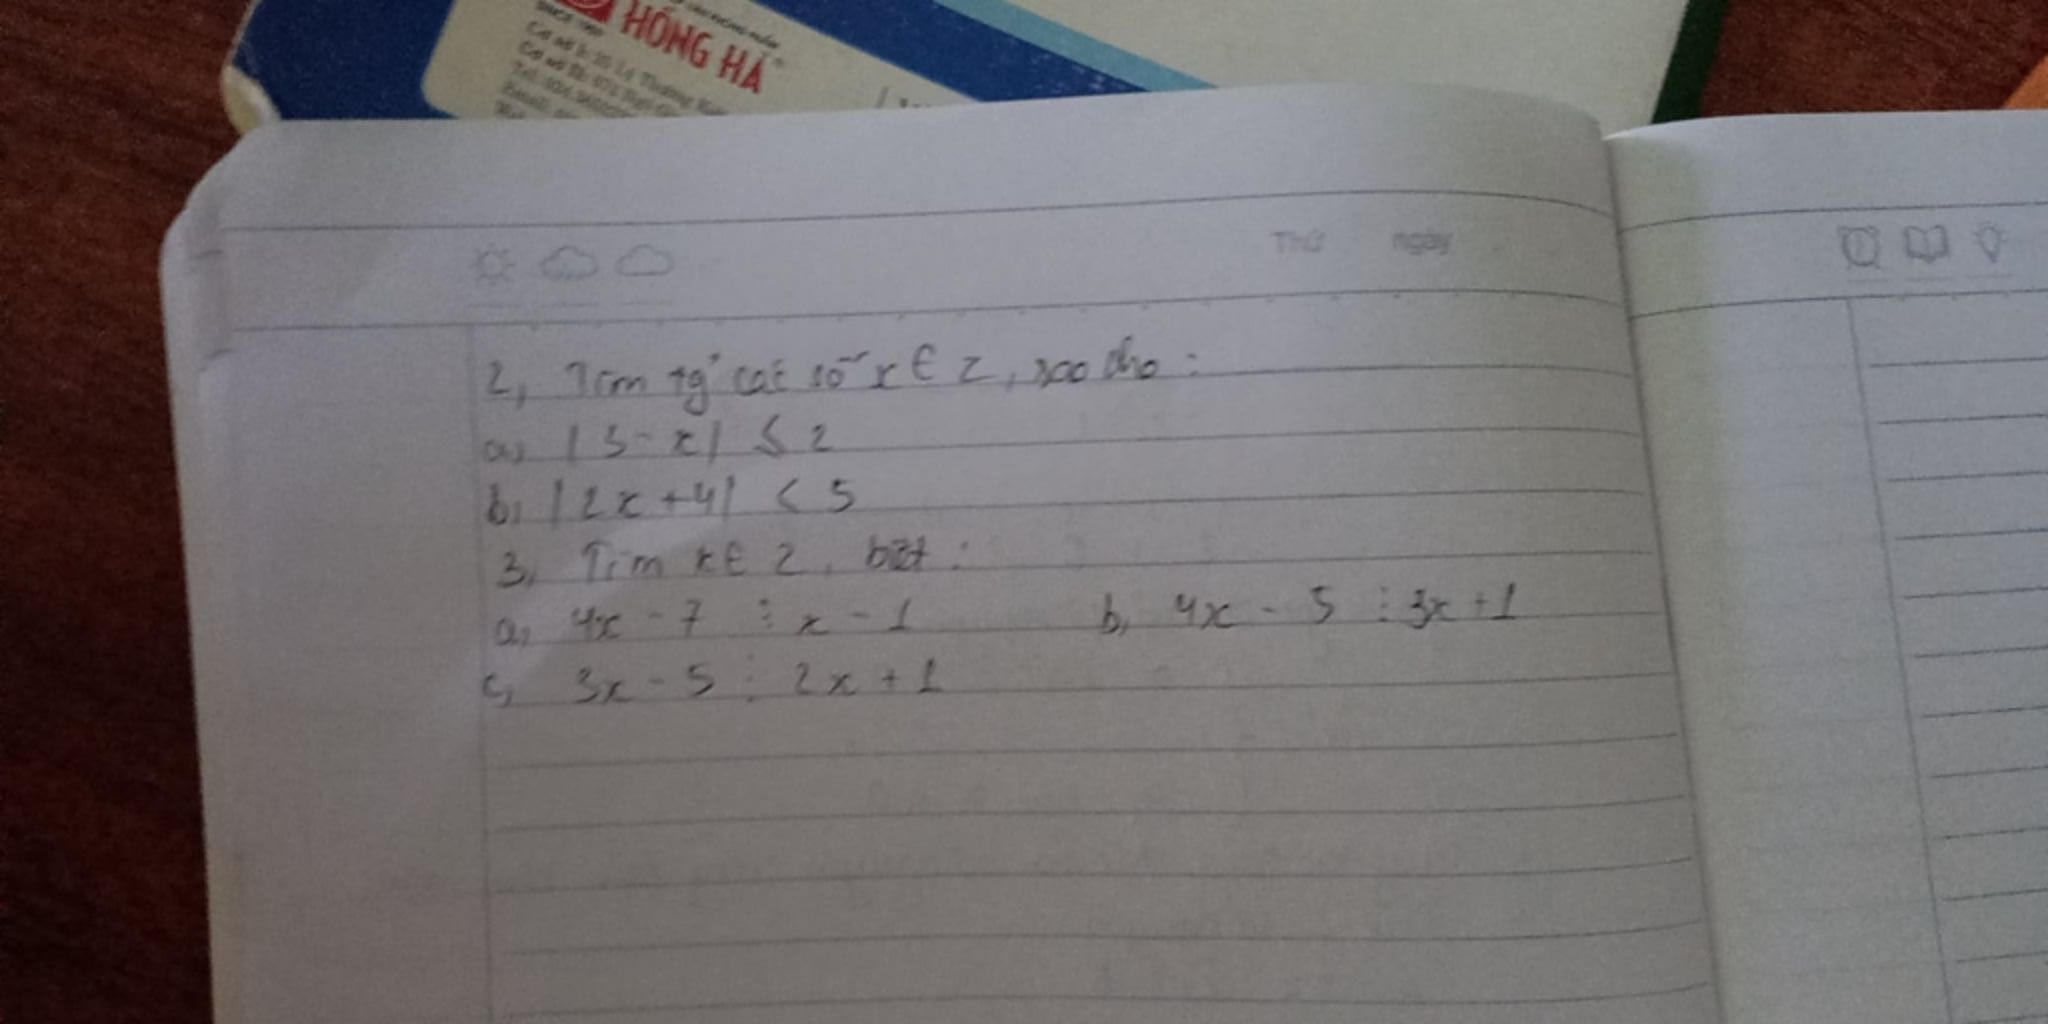 HỒNG HÀ
Thứ ngày
2, Tìm tg̉ các số x ∈ Z, sao cho :
a, |3 - x| ≤ 2
b, |2x + 4| < 5
3, Tìm x ∈ Z, biết :
a, 4x - 7 ⋮ x - 1 b, 4x - 5 ⋮ 3x + 1
c, 3x - 5 ⋮ 2x + 1